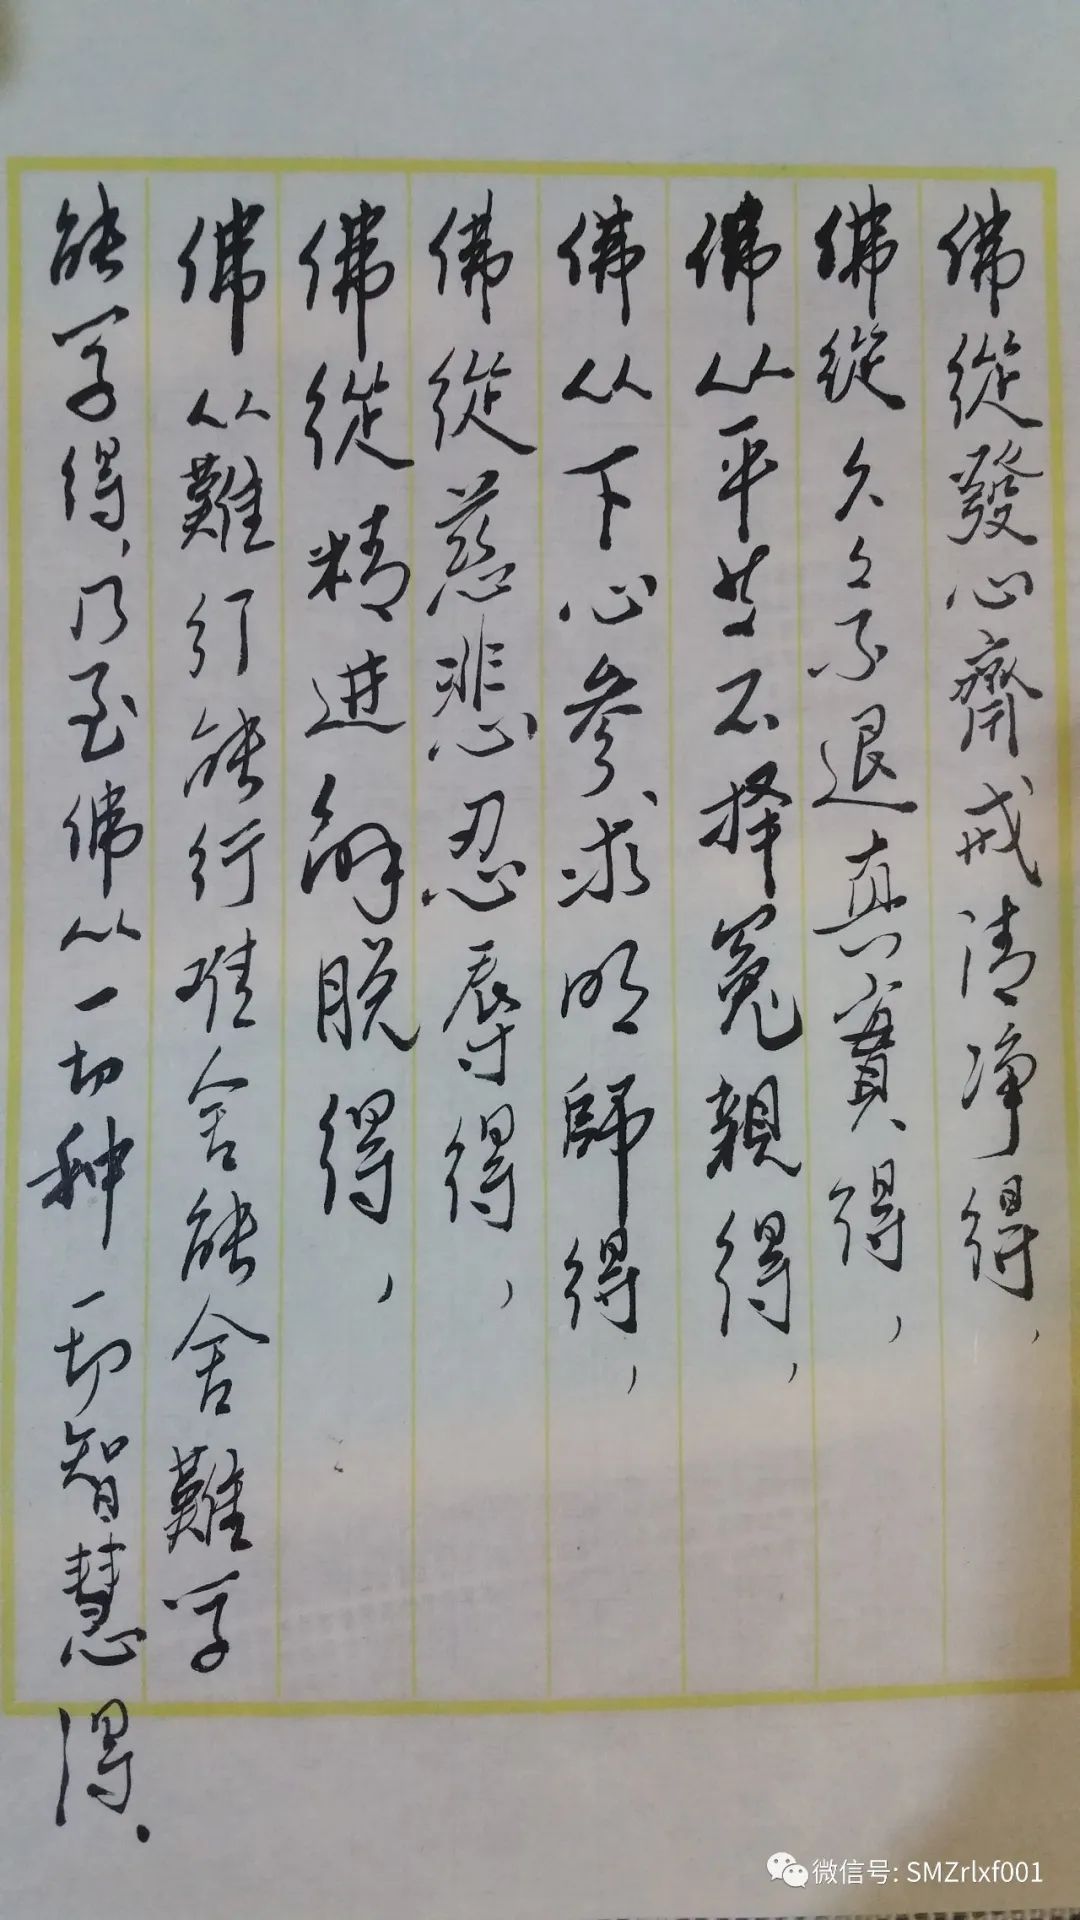 佛從發心齋戒清净得，
佛從久久不退真實得，
佛从平等不择冤親得，
佛从下心參求明師得，
佛從慈悲忍辱得，
佛從精進解脱得，
佛从難行能行难舍能舍難学
能学得，乃至佛从一切种一切智慧得.
微信号: SMZrlxf001